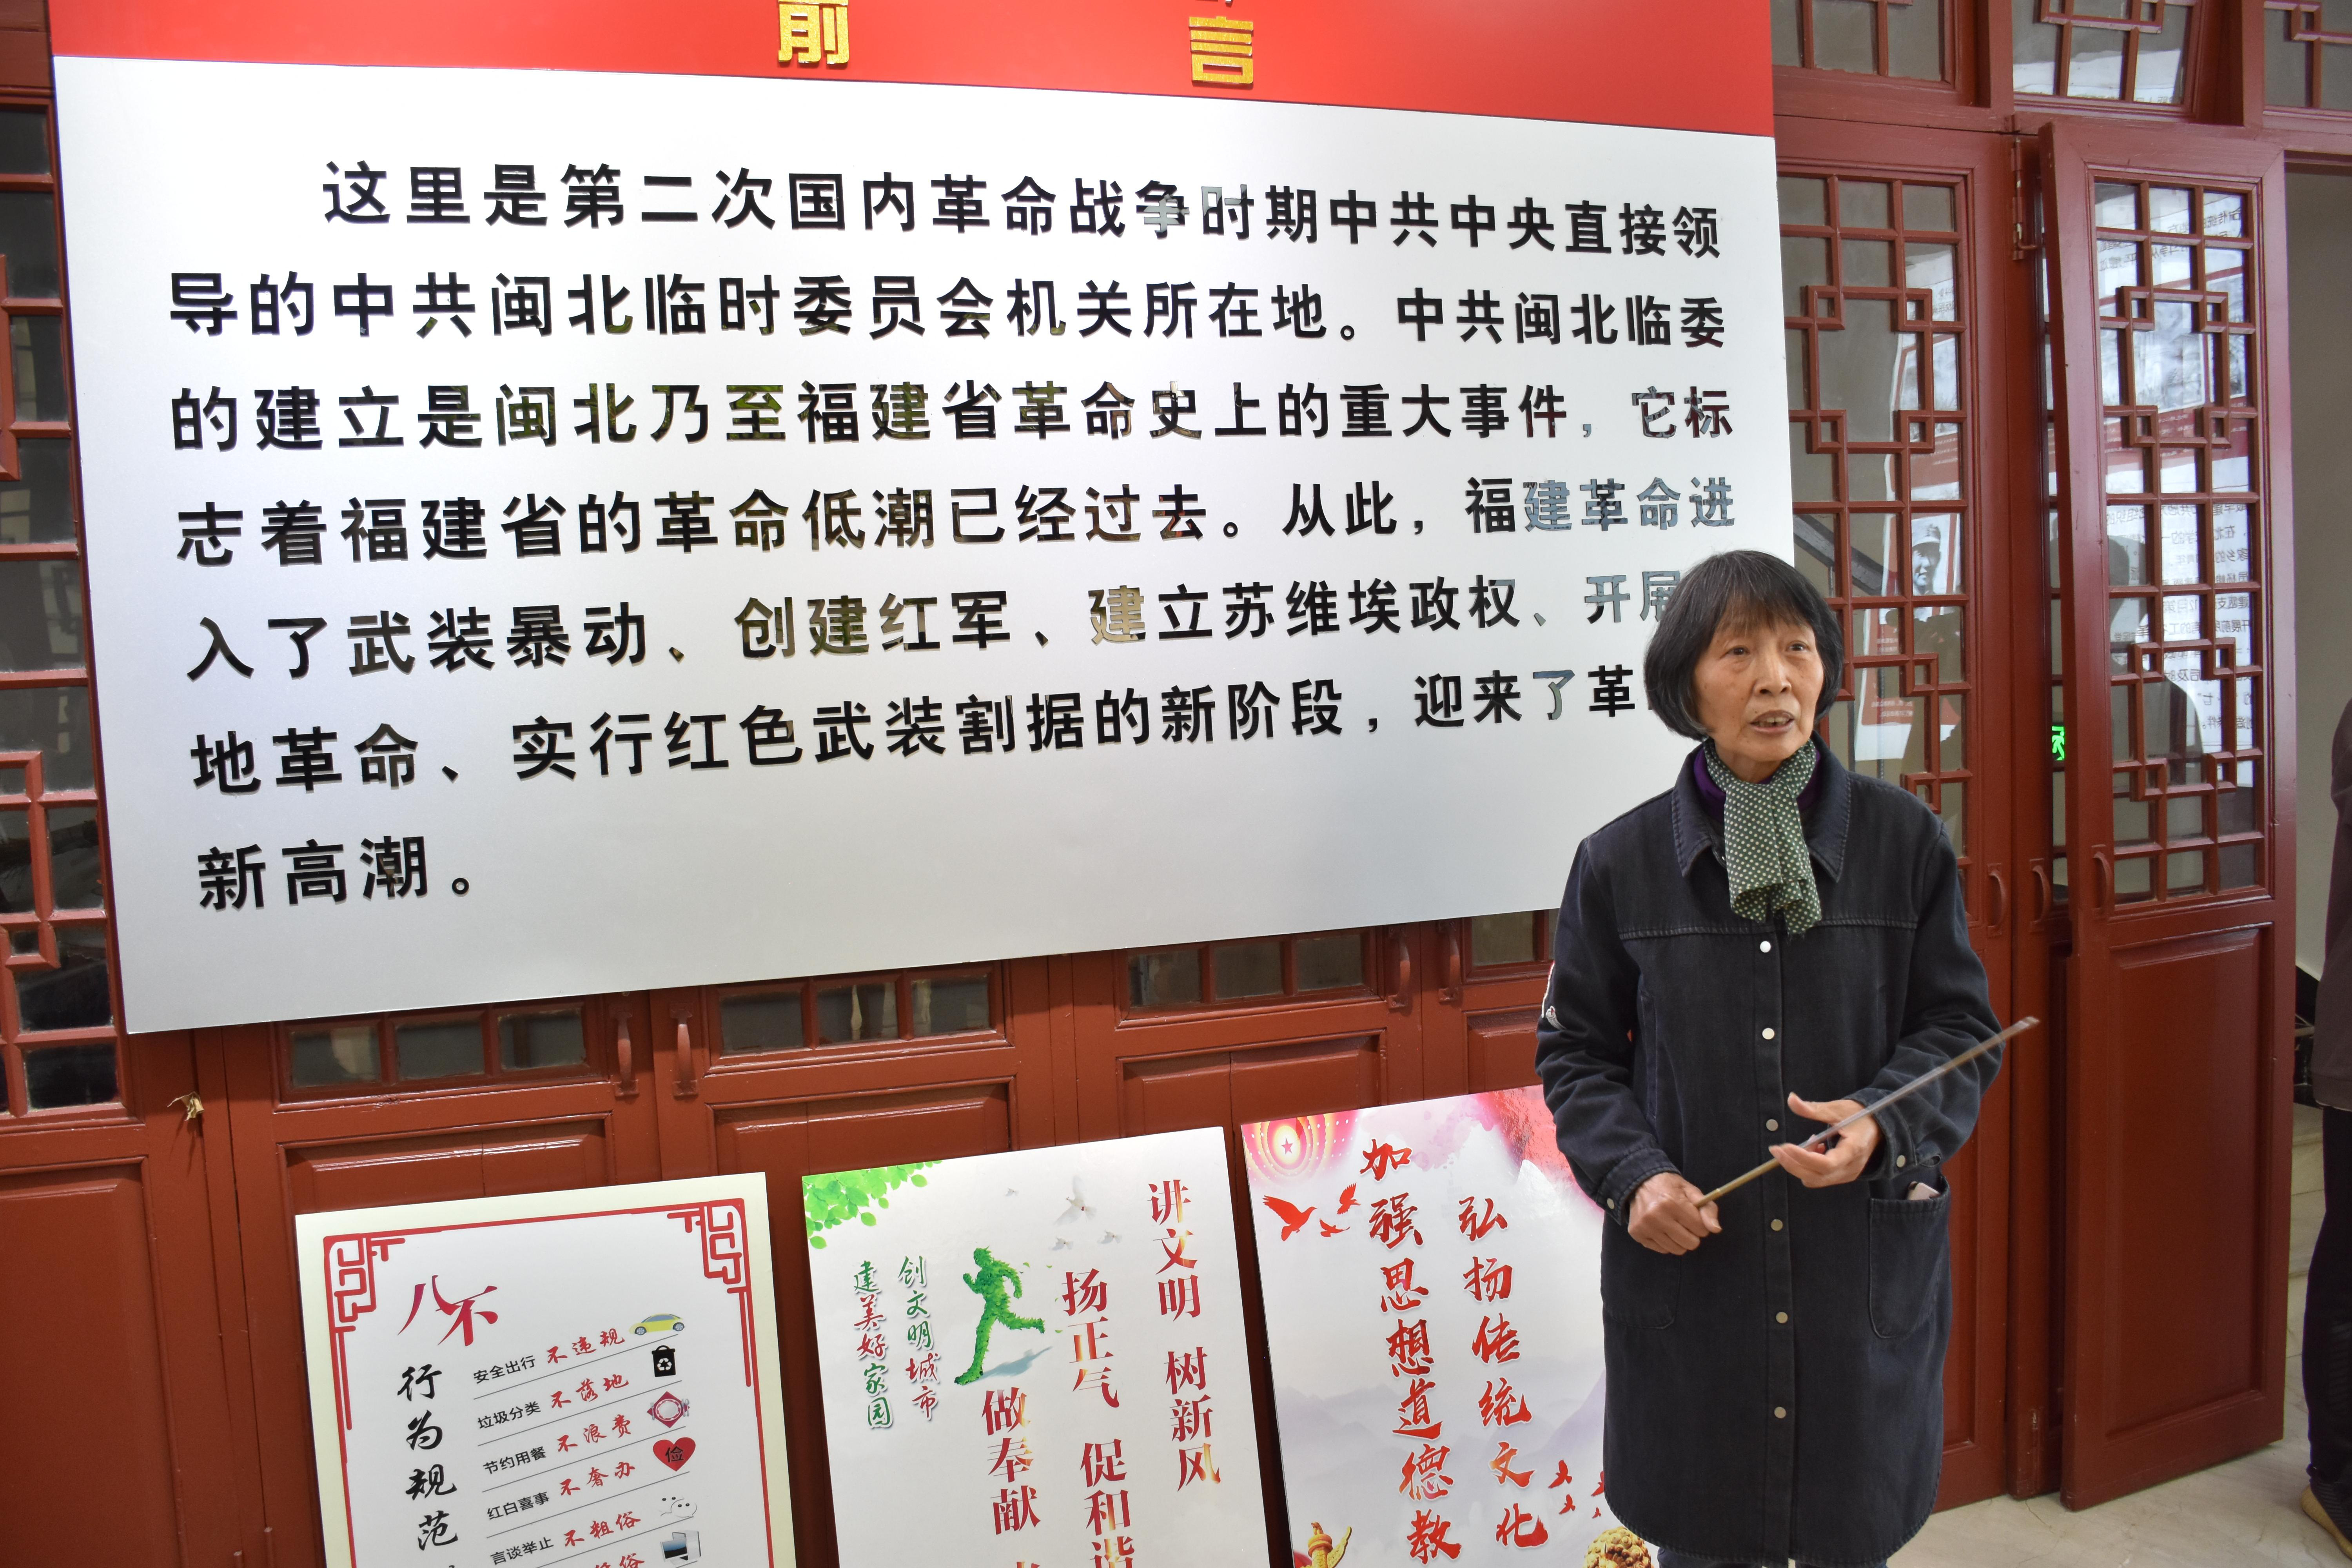 前言
这里是第二次国内革命战争时期中共中央直接领
导的中共闽北临时委员会机关所在地。中共闽北临委
的建立是闽北乃至福建省革命史上的重大事件，它标
志着福建省的革命低潮已经过去。从此，福建革命进
入了武装暴动、创建红军、建立苏维埃政权、开展
地革命、实行红色武装割据的新阶段，迎来了革
新高潮。
八不
行为规范
安全出行 不违规
垃圾分类 不落地
节约用餐 不浪费
俭
红白喜事 不奢办
言谈举止 不粗俗
俗
讲文明 树新风
扬正气 促和谐
做奉献
创文明城市
建美好家园
弘扬传统文化
加强思想道德教